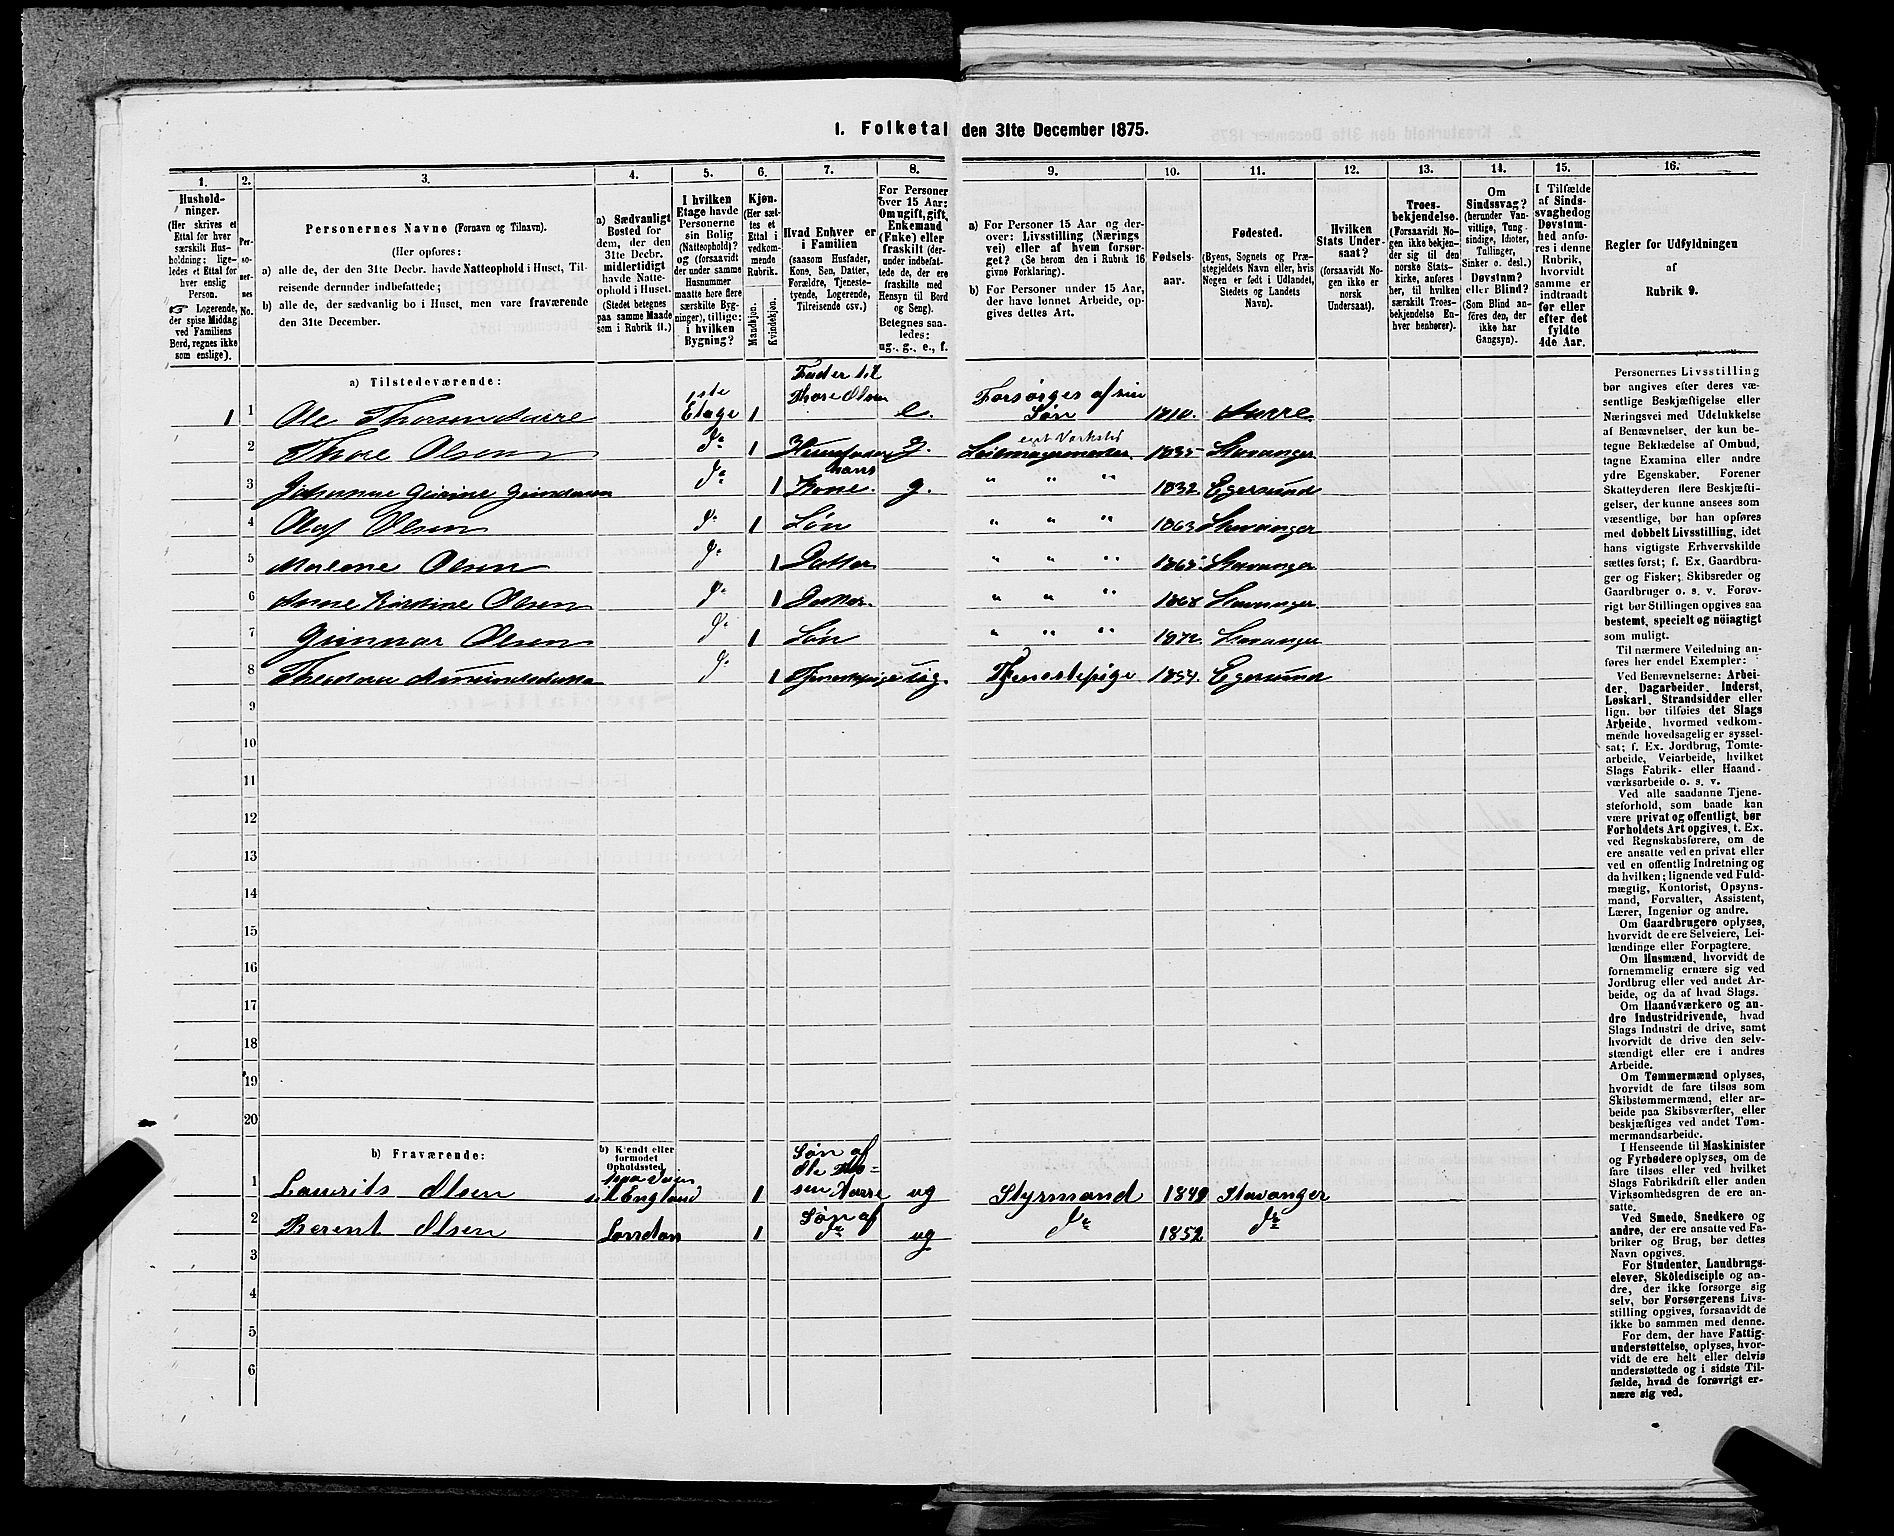 1. Folketal den 31te December 1875.
1. 2. 3. 4. 5. 6. 7. 8. 9. 10. 11. 12. 13. 14. 15. 16.
Hushold-
ninger.
(Her skrives et
Ettal for hver
særskilt Hus-
holdning; lige-
ledes et Ettal for
hver enslig
Person.
☞ Logerende,
der spise Middag
ved Familiens
Bord, regnes ikke
som enslige).
Per-
so-
ner-
nes
No.
Personernes Navne (Fornavn og Tilnavn).
(Her opføres:
a) alle de, der den 31te Decbr. havde Natteophold i Huset, Til-
reisende derunder indbefattede;
b) alle de, der sædvanlig bo i Huset, men vare fraværende
den 31te December.
a) Sædvanligt
Bosted for
dem, der den
31te Decbr.
midlertidigt
havde Natte-
ophold i Huset.
(Stedet betegnes
paa samme Maade
som i Rubrik 11.)
I hvilken
Etage havde
Personerne
sin Bolig
(Natteophold)?
og (forsaavidt
der under samme
Husnummer
maatte høre flere
særskilte Byg-
ninger), tillige:
i hvilken
Bygning?
Kjøn.
(Her sæt-
tes et
Ettal i
vedkom-
mende
Rubrik.
Mandkjøn.
Kvindekjøn.
Hvad Enhver er
i Familien
(saasom Husfader,
Kone, Søn, Datter,
Forældre, Tjeneste-
tyende, Logerende,
Tilreisende osv.)
For Personer
over 15 Aar:
Om ugift, gift,
Enkemand
(Enke) eller
fraskilt (der-
under indbefat-
tede de, der ere
fraskilte med
Hensyn til Bord
og Seng).
Betegnes saa-
ledes:
ug., g., e., f.
a) For Personer 15 Aar og der-
over: Livsstilling (Nærings
vei) eller af hvem forsør-
get? (Se herom den i Rubrik 16
givne Forklaring).
b) For Personer under 15 Aar,
der have lønnet Arbeide, op-
gives dettes Art.
Fødsels-
aar.
Fødested.
(Byens, Sognets og Præ-
stegjeldets Navn eller, hvis
Nogen er født i Udlandet,
Stedets og Landets
Navn).
Hvilken
Stats Under-
saat?
(forsaavidt No-
gen ikke er
norsk
Undersaat).
Troes-
bekjendelse.
(Forsaavidt No-
gen ikke bekjen-
der sig til den
norske Stats-
kirke, anføres
her, til hvilken
særskilt Troes-
bekjendelse En-
hver henhører).
Om
Sindssvag?
(herunder Van-
vittige, Tung
sindige, Idioter,
Tullinger,
Sinker o. desl.)
Døvstum?
eller Blind?
(Som Blind an-
føres den, der
ikke har
Gangsyn).
I Tilfælde
af Sinds-
svaghed og
Døvstum-
hed anfø-
res i denne
Rubrik,
hvorvidt
samme er
indtraadt
før eller
efter det
fyldte
4de Aar.
Regler for Udfyldningen
af
Rubrik 9.
a) Tilstedeværende:
1 1 Ole Thorsen Aarre 1ste Etage 1 Fader til Thore Olsen e. Forsørges af sin Søn 1810. Aarre
2 Thore Olsen do 1 Huusfader g. eget Værksted 1835 Stavanger
3 Johanne do 1 hans Kone. g. " " " 1832. Egersund
4 Olaf Olsen do 1 Søn " " " 1863 Stavanger
5 Malene Olsen do 1 Datter " " " Stavanger
6 Anne Kirstine Olsen do 1 Datter. " " " 1868 Stavanger
7 Gunnar Olsen do 1 Søn " " " 1872. Stavanger
8 Theodora do 1 Tjenestepige ug. Tjenestepige 1854. Egersund
9
10
11
12
13
14
15
16
17
18
19
20
b) Fraværende:
b) Kjendt eller
formodet
Opholdssted.
1 Laurits Olsen paa Veien til England 1 Søn af Ole Thorsen Aarre ug Styrmand 1849 Stavanger
2 Berent Olsen London 1 Søn af do ug do 1852 do
3
4
5
6
Personernes Livsstilling
bør angives efter deres væ-
sentlige Beskjæftigelse eller
Næringsvei med Udelukkelse
af Benævnelser, der kun be-
tegne Beklædelse af Ombud,
tagne Examina eller andre
ydre Egenskaber. Forener
Skatteyderen flere Beskjæfti-
gelser, der kunne ansees som
væsentlige, bør han opføres
med dobbelt Livsstilling, idet
hans vigtigste Erhvervskilde
sættes først; f. Ex. Gaardbru-
ger og Fisker; Skibsreder og
Gaardbruger o. s. v. Forøv-
rigt bør Stillingen opgives saa
bestemt, specielt og nöiagtigt
som muligt.
Til nærmere Veiledning an-
føres her endel Exempler:
Ved Benævnelserne: Arbei-
der, Dagarbeider, Inderst,
Løskarl, Strandsidder eller
lign. bør tilføies det Slags
Arbeide, hvormed vedkom-
mende hovedsagelig er syssel-
sat; f. Ex. Jordbrug, Tomte-
arbeide, Veiarbeide, hvilket
Slags Fabrik- eller Haand-
værksarbeide o. s. v.
Ved alle saadanne Tjene-
steforhold, som baade kan
være privat og offentligt, bør
Forholdets Art opgives, t. Ex.
ved Regnskabsførere, om de
ere ansatte ved en privat eller
ved en offentlig Indretning og
da hvilken; lignende ved Fuld-
mægtig, Kontorist, Opsyns-
mand, Forvalter, Assistent,
Lærer, Ingeniør og andre.
Om Gaardbrugere oplyses,
hvorvidt de ere Selveiere, Lei-
lændinge eller Forpagtere.
Om Husmænd, hvorvidt de
fornemmelig ernære sig ved
Jordbrug eller ved andet Ar-
beide, og da af hvad Slags.
Om Haandværkere og an-
dre Industridrivende, hvad
Slags Industri de drive, samt
hvorvidt de drive den selv-
stændigt eller ere i andres
Arbeide.
Om Tømmermænd oplyses,
hvorvidt de fare tilsøs som
Skibstømmermænd, eller ar-
beide paa Skibsværfter, eller
beskjæftiges ved andet Tøm-
mermandsarbeide.
I Henseende til Maskinister
og Fyrbødere oplyses, om de
fare tilsøs eller ved hvilket
Slags Fabrikdrift eller anden
Virksomhedsgren de ere an-
satte.
Ved Smede, Snedkere og
andre, der ere ansatte ved Fa-
briker og Brug, bør dettes
Navn opgives.
For Studenter, Landbrugs-
elever, Skoledisciple og an-
dre, der ikke forsørge sig
selv, bør Forsørgerens Livs-
stilling opgives, forsaavidt de
ikke bo sammen med denne.
For dem, der have Fattig-
understøttelse, oplyses, hvor-
vidt de ere helt eller delvis
understøttede og i sidste Til-
fælde, hvad de forøvrigt er-
nære sig ved.